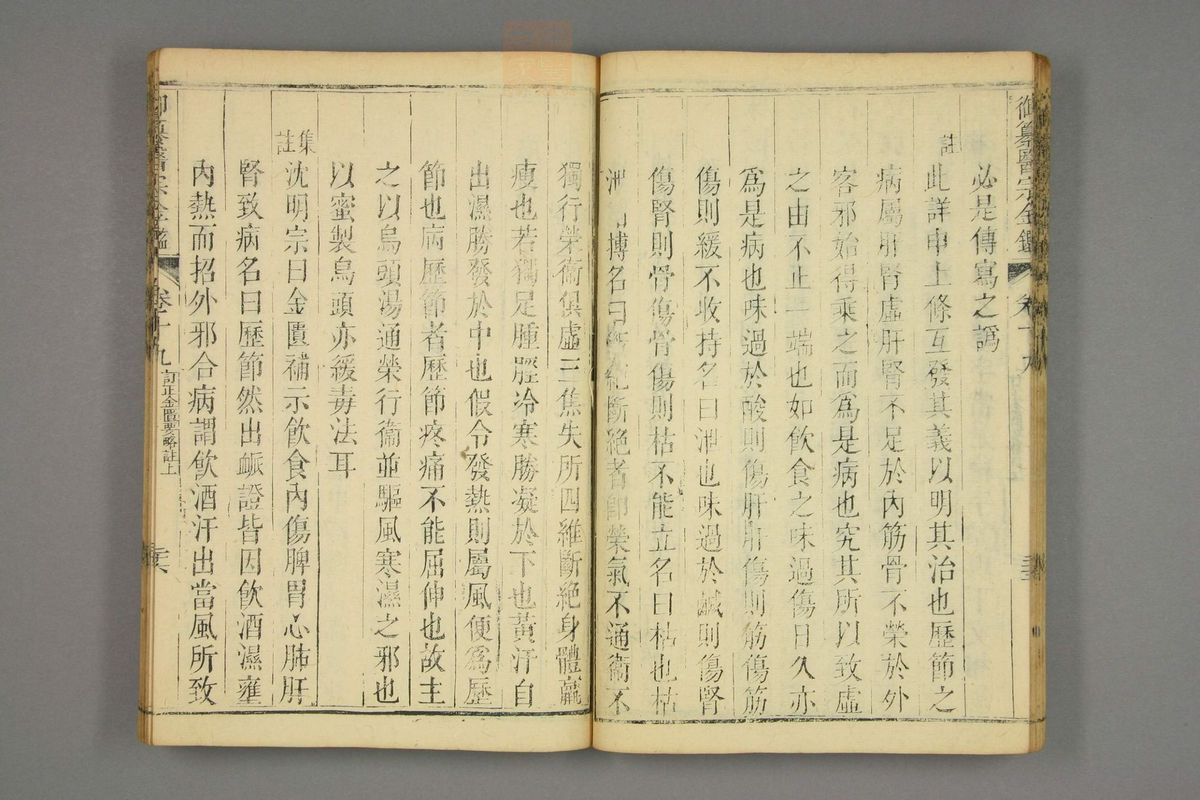 御纂醫宗金鑑 卷十九
必是傳寫之譌
註
此詳申上條互發其義以明其治也歷節之
病屬肝腎虛肝腎不足於內筋骨不榮於外
客邪始得乘之而爲是病也究其所以致虛
之由不止一端也如飲食之味過傷日久亦
爲是病也味過於酸則傷肝肝傷則筋傷筋
傷則緩不收持名曰泄也味過於鹹則傷腎
傷腎則骨傷骨傷則枯不能立名曰枯也枯
泄相搏名曰斷絕斷絕者卽榮氣不通衞不
獨行榮衞俱虛三焦失所四維斷絕身體羸
瘦也若獨足腫脛冷寒勝凝於下也黃汗自
出濕勝發於中也假令發熱則屬風便爲歷
節也病歷節者歷節疼痛不能屈伸也故主
之以烏頭湯通榮行衞並驅風寒濕之邪也
以蜜製烏頭亦緩毒法耳
集註
沈明宗曰金匱補示飲食內傷脾胃心肺肝
腎致病名曰歷節然出衇證皆因飲酒濕壅
內熱而招外邪合病謂飲酒汗出當風所致
御纂醫宗金鑑 卷十九 訂正金匱要略註上